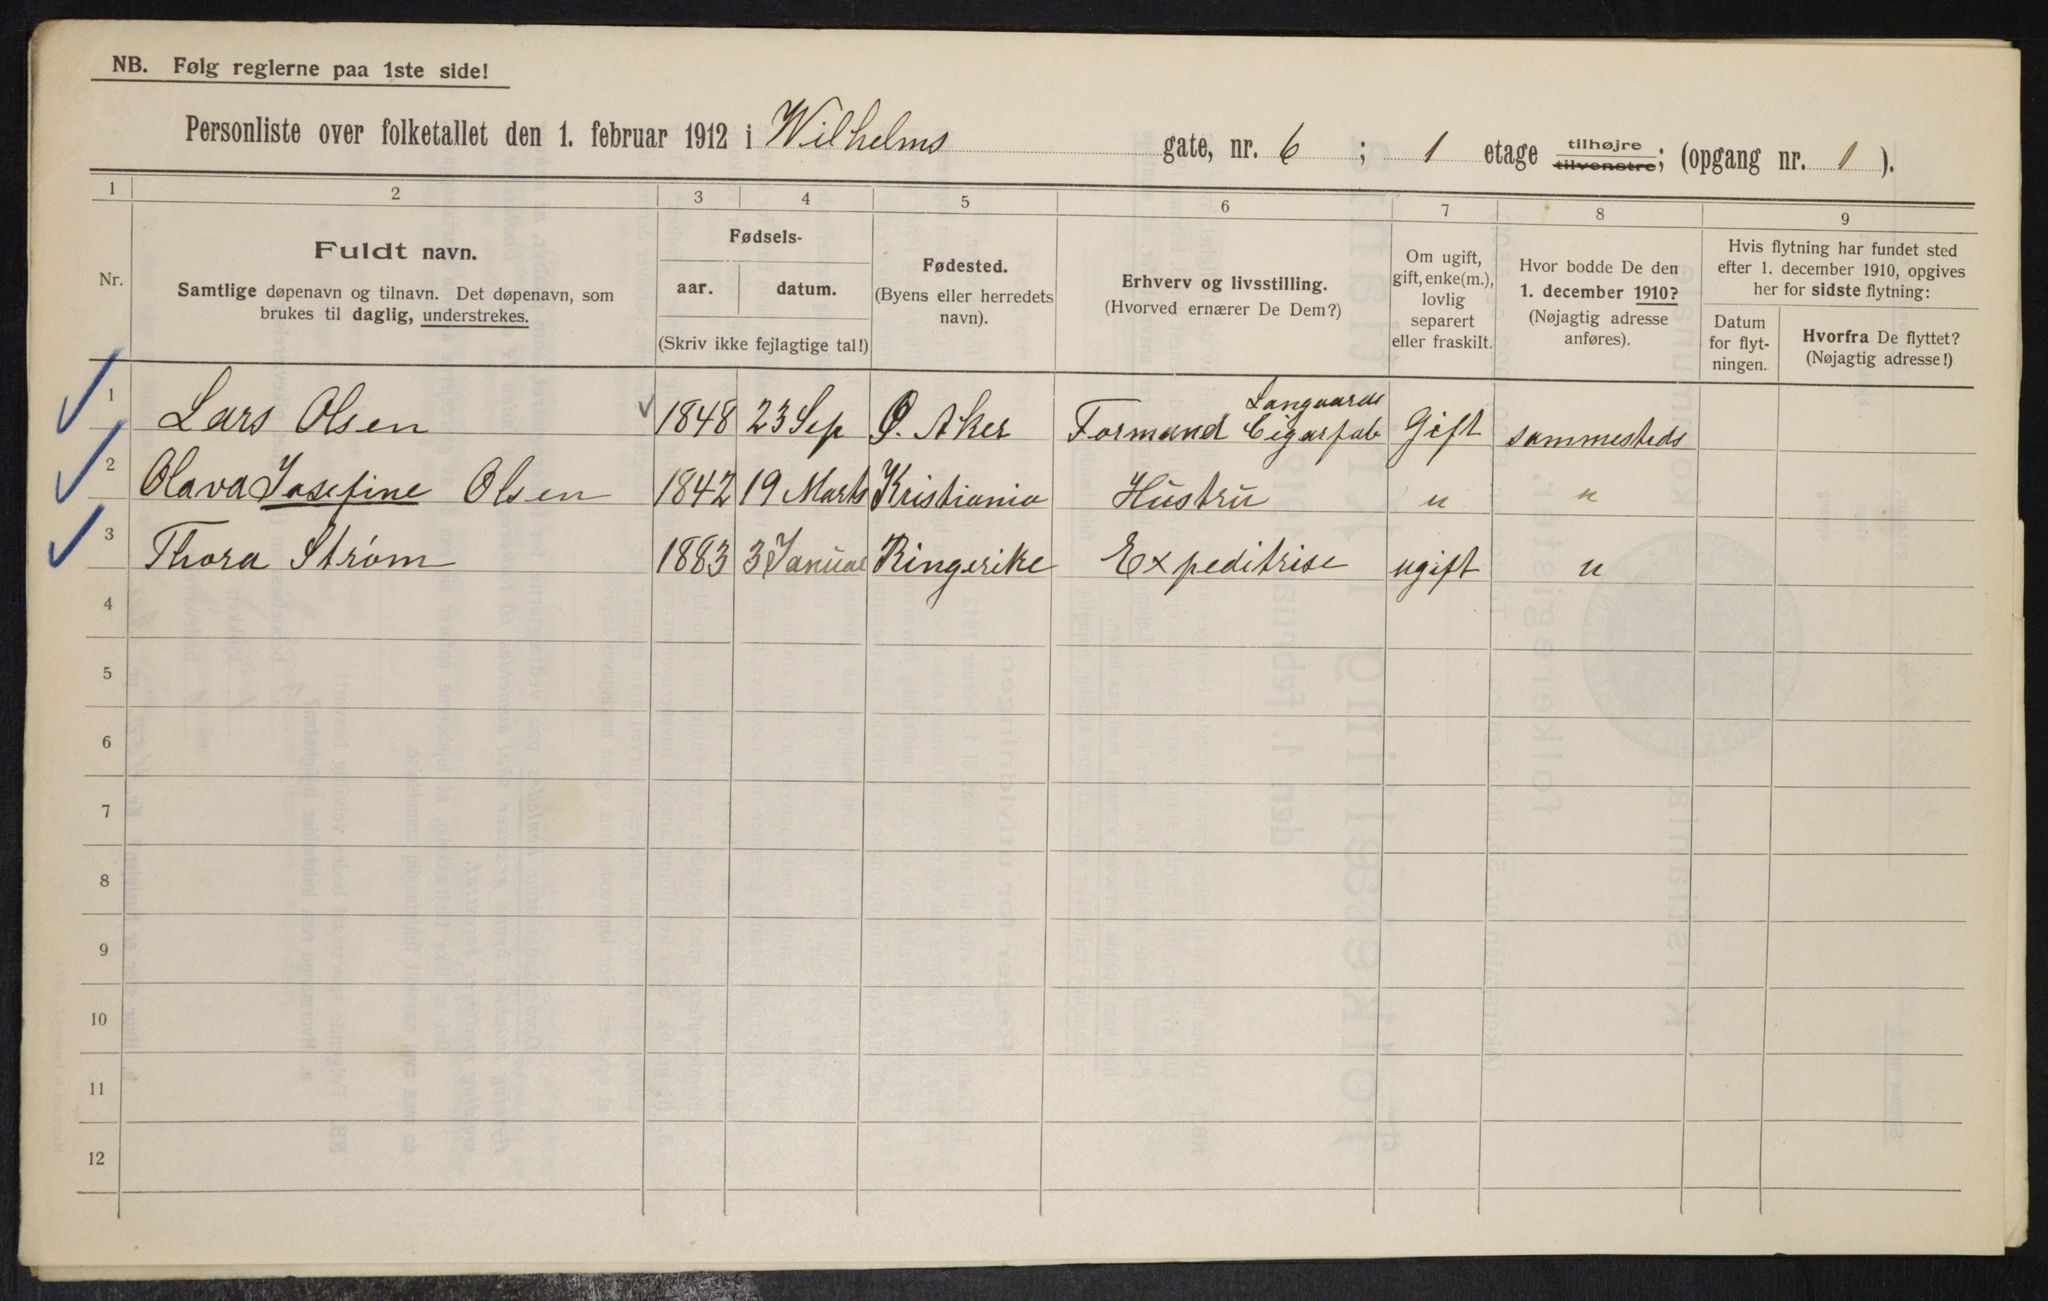 NB. Følg reglerne paa 1ste side!
Personliste over folketallet den 1. februar 1912 i Wilhelms gate, nr. 6 ; 1 etage tilhøjre tilvenstre; (opgang nr. 1 ).
1 2 3 4 5 6 7 8 9
Nr.
Fuldt navn.
Samtlige døpenavn og tilnavn. Det døpenavn, som
brukes til daglig, understrekes.
Fødsels-
aar. datum.
(Skriv ikke fejlagtige tal!)
Fødested.
(Byens eller herredets
navn).
Erhverv og livsstilling.
(Hvorved ernærer De Dem?)
Om ugift,
gift, enke(m.),
lovlig
separert
eller fraskilt.
Hvor bodde De den
1. december 1910?
(Nøjagtig adresse
anføres).
Hvis flytning har fundet sted
efter 1. december 1910, opgives
her for sidste flytning:
Datum
for flyt-
ningen.
Hvorfra De flyttet?
(Nøjagtig adresse!)
1 Lars Olsen 1848 23 Sep Ø. Aker Formand Langaards Cigarfab Gift sammesteds
2 Olava Josefine Olsen 1842 19 Marts Kristiania Hustru " "
3 Thora Strøm 1883 3 Januar Ringerike Expeditrise ugift "
4
5
6
7
8
9
10
11
12